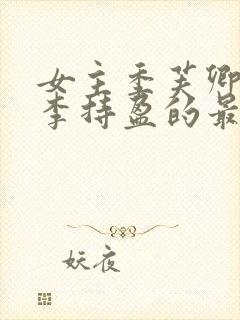 女主季芙卿
李持盈的最
妖夜